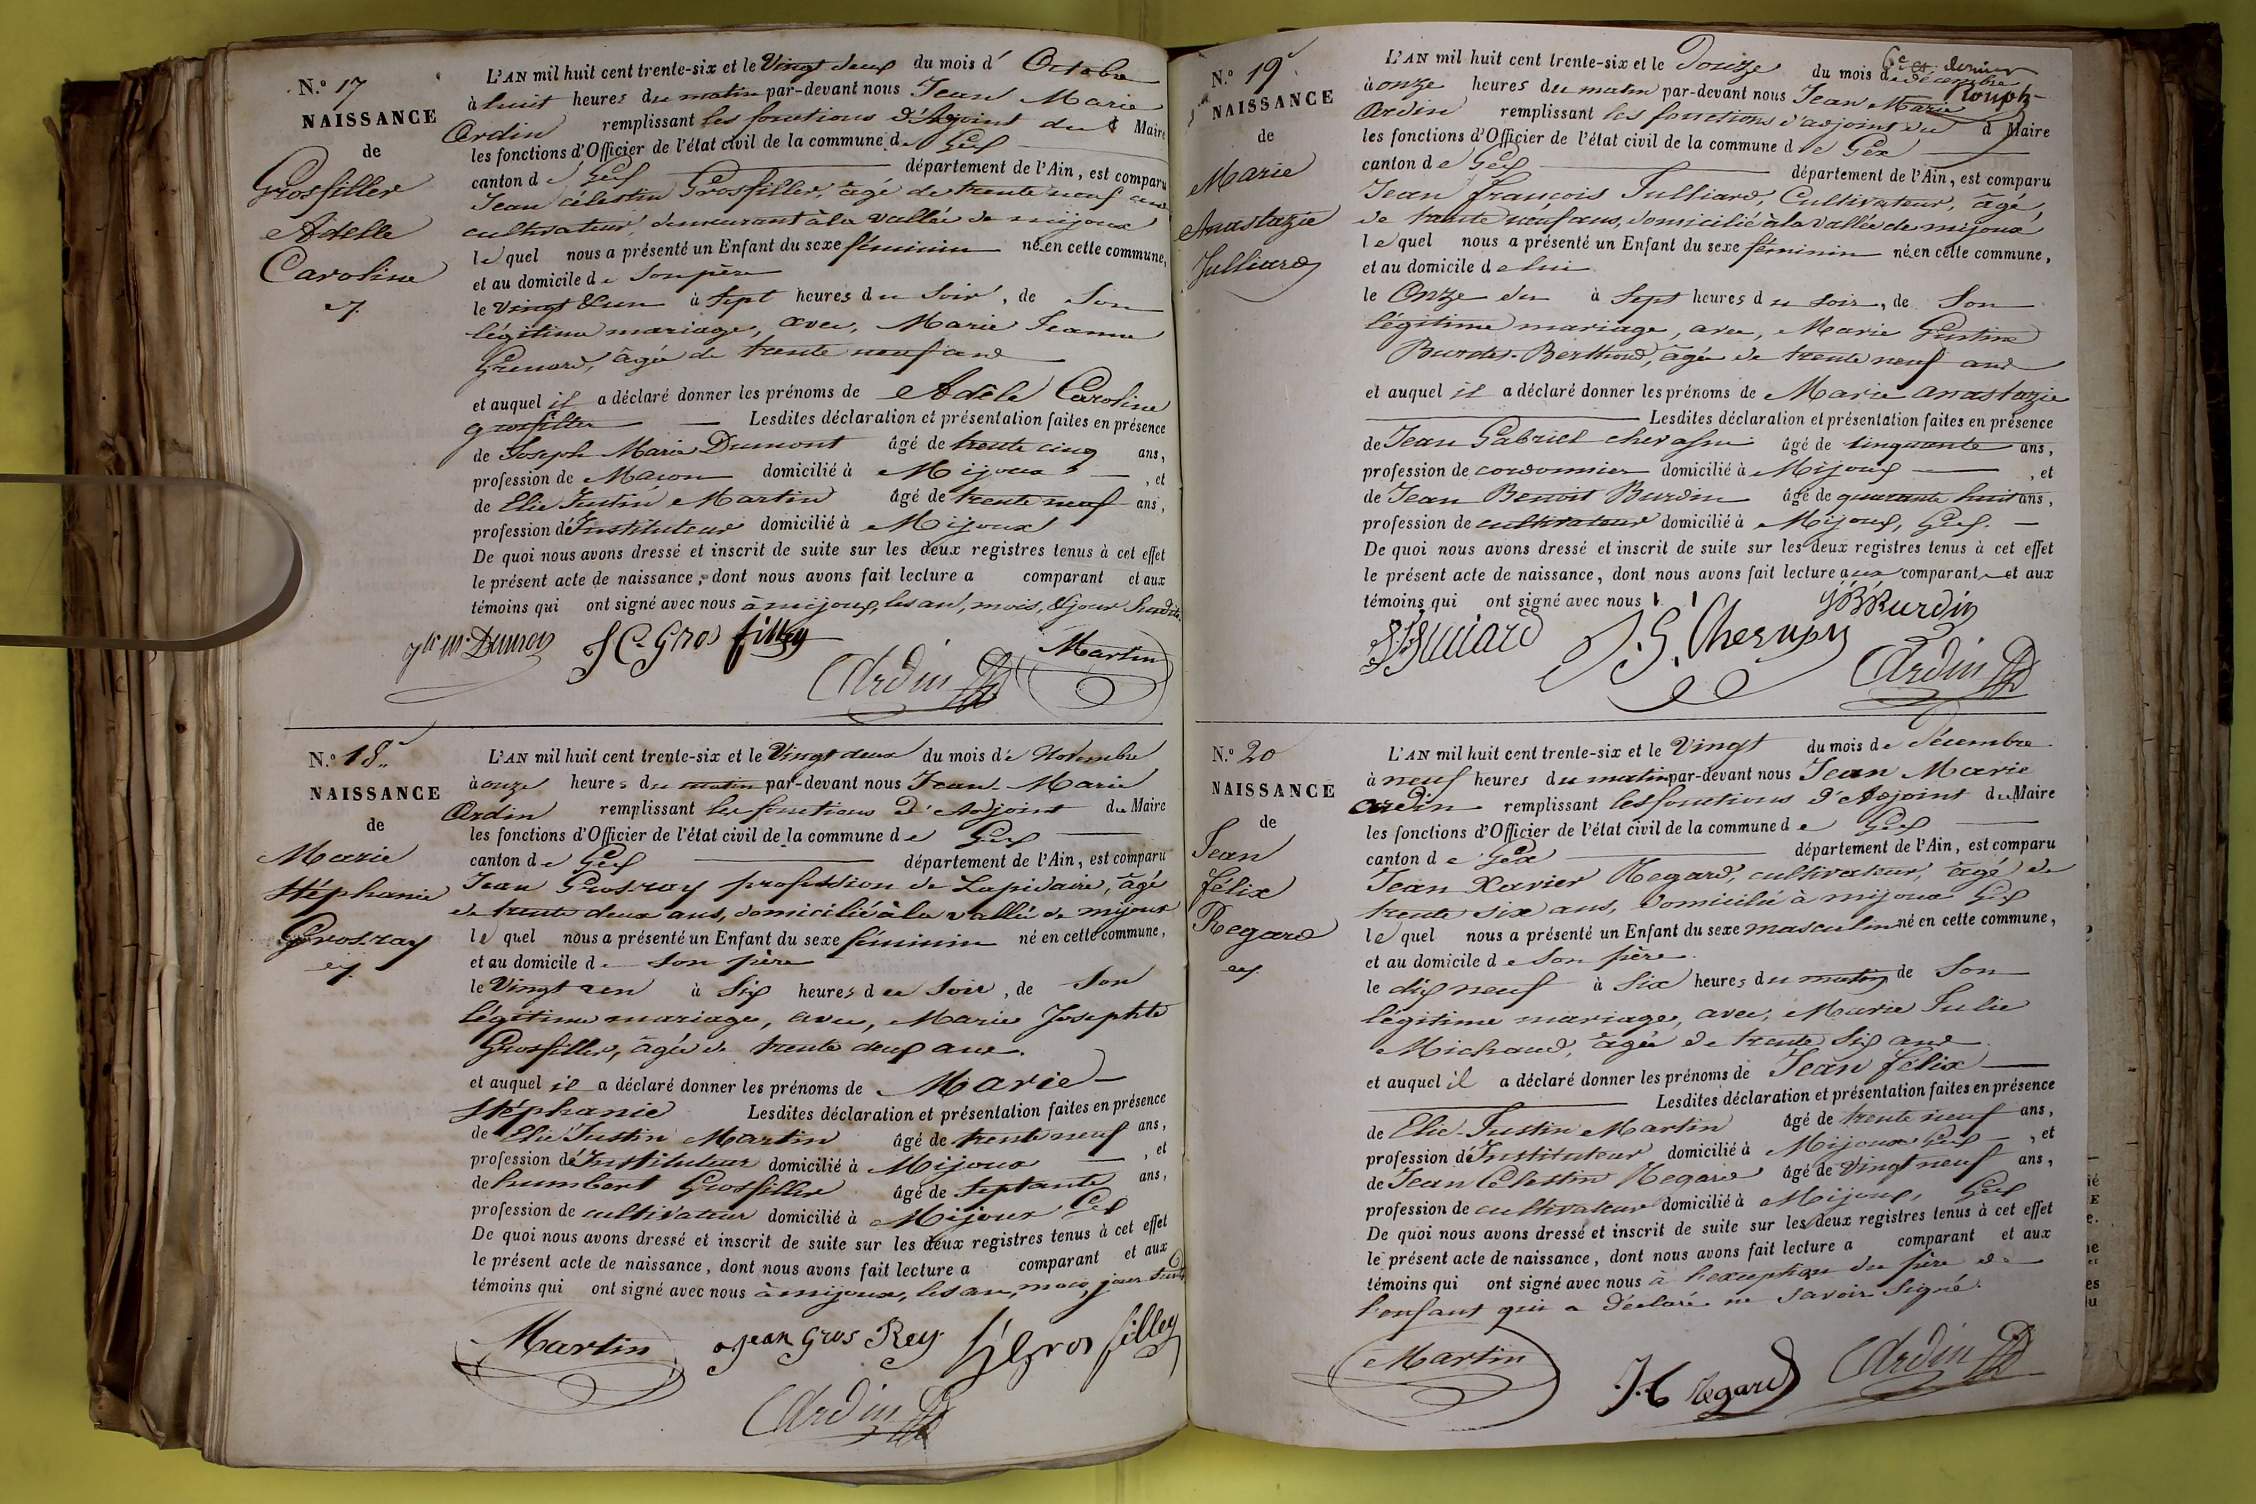 N.º 17
NAISSANCE
de
Grosfiller
Adelle
Caroline
L'AN mil huit cent trente-six et le Vingt deux du mois d' Octobre
à huit heures du matin par-devant nous Jean Marie
Ardin remplissant les fonctions d'Adjoint du Maire
les fonctions d'Officier de l'état civil de la commune de Gex
canton de Gex département de l'Ain, est comparu
Jean célestin Grosfiller, âgé de trente neuf ans
cultivateur, demeurant à la vallée de mijoux
lequel nous a présenté un Enfant du sexe féminin né en cette commune,
et au domicile de Son père
le Vingt & un à Sept heures du Soir, de Son
légitime mariage, avec, Marie Jeanne
Grenard, âgée de trente neuf ans
et auquel il a déclaré donner les prénoms de Adèle Caroline
grosfiller Lesdites déclaration et présentation faites en présence
de Joseph Marie Dumont âgé de trente cinq ans,
profession de Macon domicilié à Mijoux, et
de Elie Justin Martin âgé de trente neuf ans,
profession d'Instituteur domicilié à Mijoux
De quoi nous avons dressé et inscrit de suite sur les deux registres tenus à cet effet
le présent acte de naissance, dont nous avons fait lecture a comparant et aux
témoins qui ont signé avec nous à mijoux, les an, mois, & jour Susdits.
Dumon J C Gros filley Martin
Ardin
N.º 18
NAISSANCE
de
Marie
Stéphanie
Grosray
L'AN mil huit cent trente-six et le Vingt deux du mois de Novembre
à onze heures du matin par-devant nous Jean Marie
Ardin remplissant les fonctions d'Adjoint du Maire
les fonctions d'Officier de l'état civil de la commune de Gex
canton de Gex département de l'Ain, est comparu
Jean Grosray profession de Lapidaire, âgé
de trente deux ans, domicilié à la vallée de mijoux
lequel nous a présenté un Enfant du sexe féminin né en cette commune,
et au domicile de son père
le Vingt un à Six heures du Soir, de Son
légitime mariage, avec, Marie Josephte
Grosfiller, âgée de trente deux ans.
et auquel il a déclaré donner les prénoms de Marie
Stéphanie Lesdites déclaration et présentation faites en présence
de Elie Justin Martin âgé de trente neuf ans,
profession d'Instituteur domicilié à Mijoux, et
de humbert Grosfiller âgé de Septante ans,
profession de cultivateur domicilié à Mijoux Gex
De quoi nous avons dressé et inscrit de suite sur les deux registres tenus à cet effet
le présent acte de naissance, dont nous avons fait lecture a comparant et aux
témoins qui ont signé avec nous à mijoux, les an, mois, jour
Martin Jean Gros Rey Gros filley
Ardin
N.º 19
NAISSANCE
de
Marie
Anastazie
Julliard
L'AN mil huit cent trente-six et le Douze du mois de décembre
6e et dernier
à onze heures du matin par-devant nous Jean Marie
Ardin remplissant les fonctions d'adjoint du Maire
les fonctions d'Officier de l'état civil de la commune de Gex
canton de Gex département de l'Ain, est comparu
Jean françois Julliard, Cultivateur, âgé
de trente neuf ans, domicilié à la vallée de mijoux
lequel nous a présenté un Enfant du sexe féminin né en cette commune,
et au domicile de lui
le Onze du à Sept heures du soir, de Son
légitime mariage, avec, Marie Justine
Burdet-Berthoud, âgée de trente neuf ans
et auquel il a déclaré donner les prénoms de Marie anastazie
Lesdites déclaration et présentation faites en présence
de Jean Gabriel âgé de cinquante ans,
profession de cordonnier domicilié à Mijoux, et
de Jean Benoit Burdin âgé de quarante huit ans,
profession de cultivateur domicilié à Mijoux, Gex.
De quoi nous avons dressé et inscrit de suite sur les deux registres tenus à cet effet
le présent acte de naissance, dont nous avons fait lecture aux comparant et aux
témoins qui ont signé avec nous
JB Burdin
J.G. Ardin
N.º 20
NAISSANCE
de
Jean
félix
Regard
L'AN mil huit cent trente-six et le Vingt du mois de décembre
à neuf heures du matin par-devant nous Jean Marie
ardin remplissant les fonctions d'Adjoint du Maire
les fonctions d'Officier de l'état civil de la commune de Gex
canton de Gex département de l'Ain, est comparu
Jean Xavier Regard, cultivateur, âgé de
trente six ans, domicilié à mijoux Gex
lequel nous a présenté un Enfant du sexe masculin né en cette commune,
et au domicile de Son père.
le dix neuf à Six heures du matin de Son
légitime mariage, avec, Marie Julie
Michaud, âgée de trente Six ans
et auquel il a déclaré donner les prénoms de Jean félix
Lesdites déclaration et présentation faites en présence
de Elie-Justin Martin âgé de trente neuf ans,
profession d'Instituteur domicilié à Mijoux Gex, et
de Jean Célestin Regard âgé de Vingt neuf ans,
profession de cultivateur domicilié à Mijoux, Gex
De quoi nous avons dressé et inscrit de suite sur les deux registres tenus à cet effet
le présent acte de naissance, dont nous avons fait lecture a comparant et aux
témoins qui ont signé avec nous à l'exception du père de
l'enfant qui a déclaré ne savoir signé.
Martin J C Regard Ardin